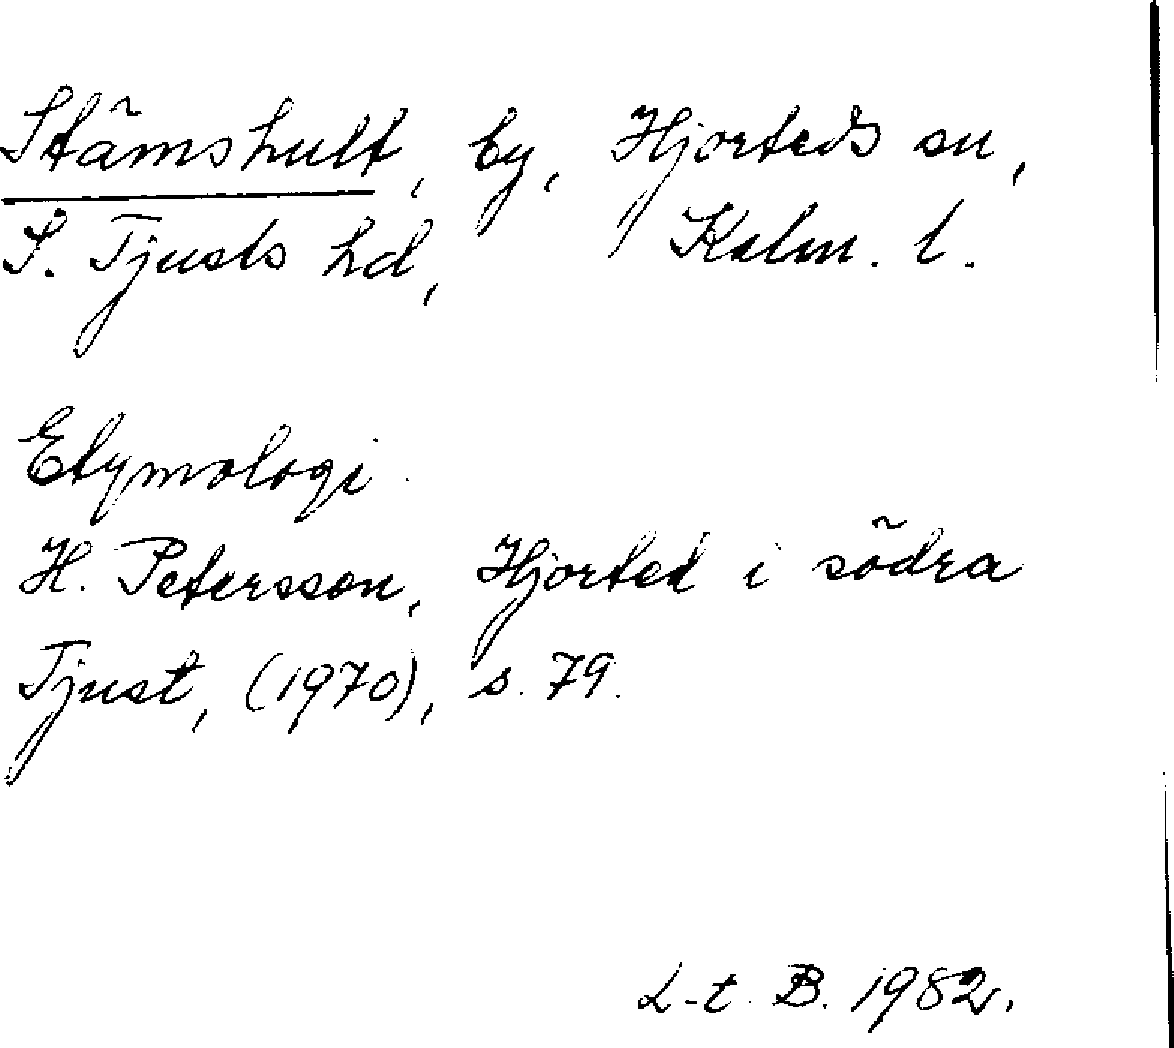 Stämshult, by, Hjorteds sn,
S. Tjusts hd, Kalm. l.
Etymologi.
H. Petersson, Hjorted i södra
Tjust, (1970), s. 79.
L-t. B. 1982.